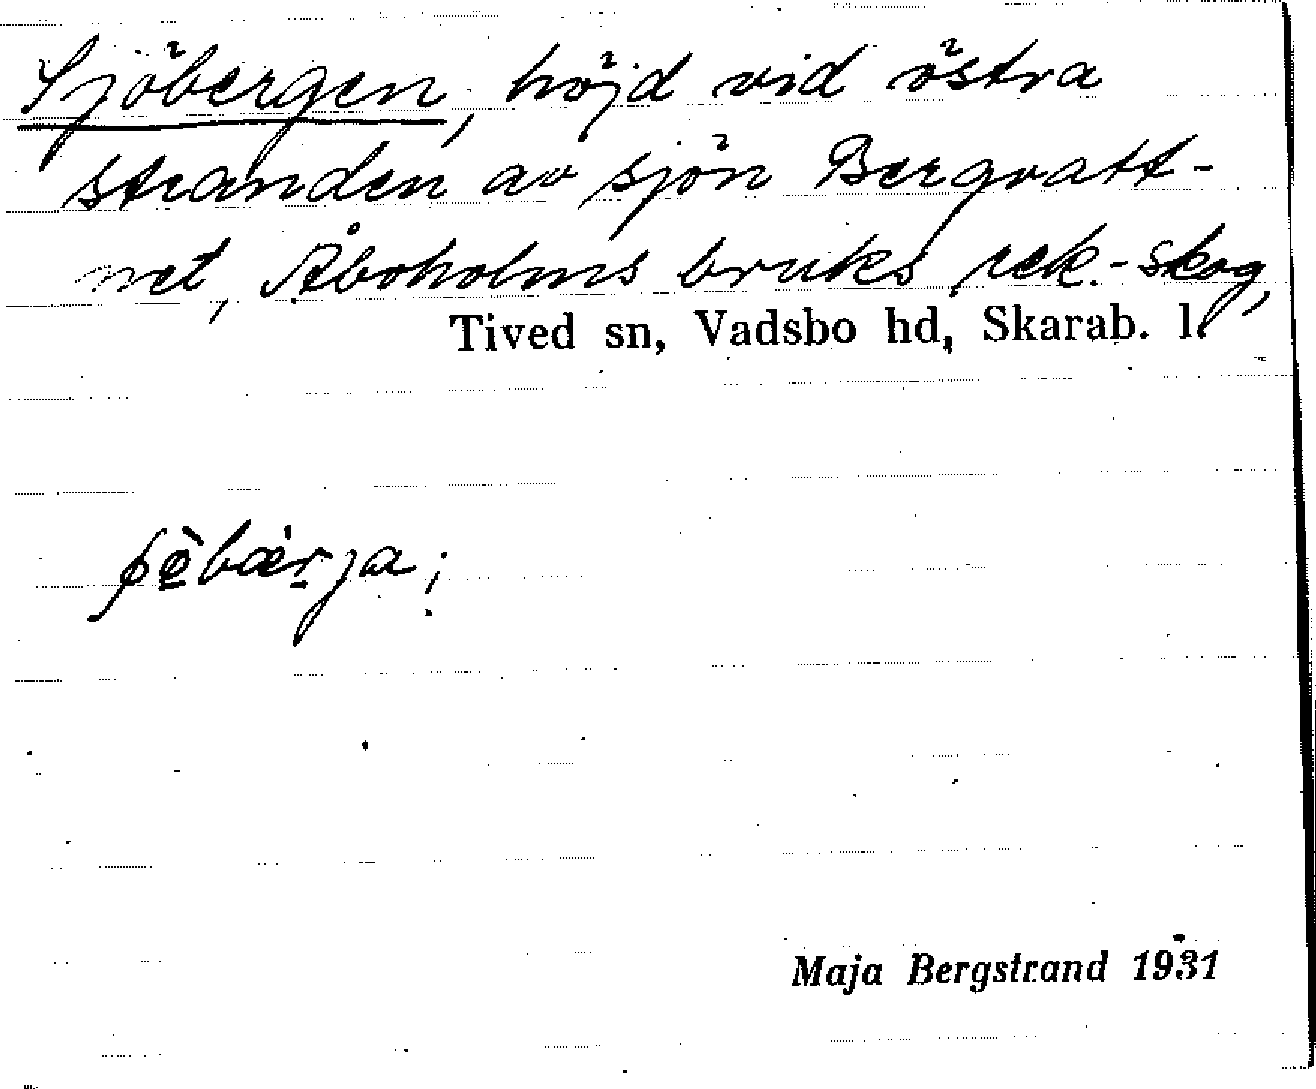 Sjöbergen, höjd vid östra
stranden av sjön Bergvatt-
net, Åboholms bruks rek.-skog,
Tived sn, Vadsbo hd, Skarab. l.
Maja Bergstrand 1931